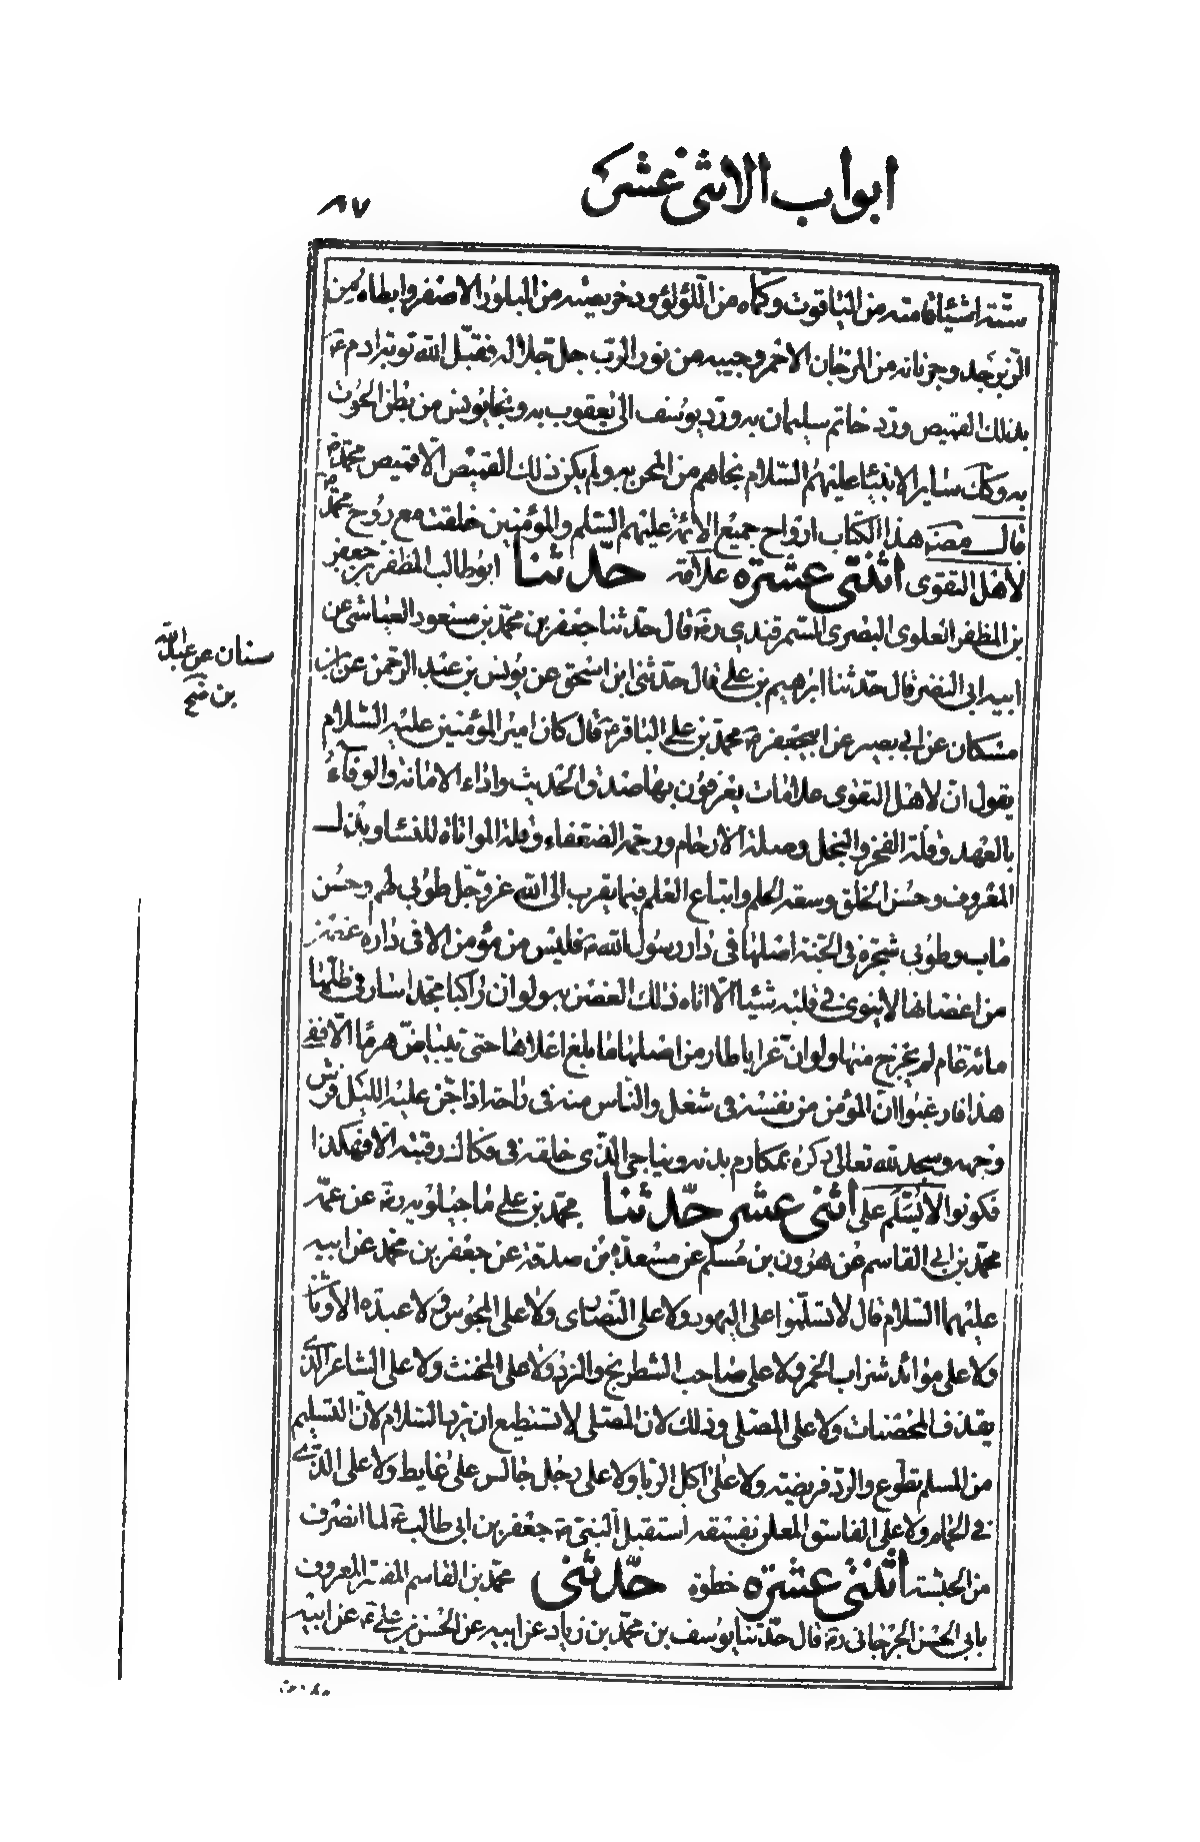 ابواب الاثنى عشر
٨٧
ستة اشياء قامته من الياقوت وكماه من اللؤلؤ ودخريصيه من البلور الاصفر وابطاه من
الزبرجد وجربانه من المرجان الاحمر وجيبه من نور الرب جل جلاله فقبل الله توبة ادم ع
بذلك القميص ورد خاتم سليمان به ورد يوسف الى يعقوب به ونجا يونس من بطن الحوت
به وكذلك ساير الانبيا عليهم السلام نجاهم من المحن به ولم يكن ذلك القميص الا قميص محمد ص
قال مصنف هذا الكتاب ارواح جميع الائمة عليهم السلم والمؤمنين خلقت مع روح محمد ص
لاهل التقوى اثنتى عشرة علامة حدثنا ابو طالب المظفر بن جعفر
بن المظفر العلوى البصرى السمرقندى ره قال حدثنا جعفر بن محمد بن مسعود العياشى عن
ابيه ابى النضر قال حدثنا ابرهيم بن على قال حدثنى ابن اسحق عن يونس بن عبد الرحمن عن ابن
سنان عن عبد الله
بن صح
مسكان عن ابى بصير عن ابى جعفر ع محمد بن على الباقر ع قال كان امير المؤمنين عليه السلام
يقول ان لاهل التقوى علامات يعرفون بها صدق الحديث واداء الامانة والوفآء
بالعهد وقلة الفخر والبخل وصلة الارحام ورحمة الضعفاء وقلة المواتاة للنساو بذل
المعروف وحسن الخلق وسعة الحلم واتباع العلم فيما يقرب الى الله عز وجل طوبى لهم وحسن
ماب وطوبى شجرة فى الجنة اصلها فى دار رسول الله ص فليس من مؤمن الا فى داره غصن
من اغصانها لا ينوى فى قلبه شيئا الا اتاه ذلك الغصن به ولو ان راكبا مجدا سار فى ظلها
مائة عام لم يخرج منها ولو ان غرابا طار من اصلها ما بلغ اعلاها حتى يبياض هرما الا ففى
هذا فارغبوا ان المؤمن من نفسه فى شغل والناس منه فى راحة اذا جن عليه الليل فرش
وجهه وسجد لله تعالى ذكره بمكارم بدنه ويناجى الذى خلقه فى فكاك رقبته الا فهكذا
فكونوا لا يسلم على اثنى عشر حدثنا محمد بن على ماجيلويه ره عن عمه
محمد بن ابى القاسم عن هرون بن مسلم عن مسعدة بن صدقة عن جعفر بن محمد عن ابيه
عليهما السلام قال لا تسلموا على اليهود ولا على النصارى ولا على المجوس ولا عبدة الاوثان
ولا على موائد شراب الخمر ولا على صاحب الشطرنج والنرد ولا على المخنث ولا على الشاعر الذى
يقذف المحصنات ولا على المصلى وذلك لان المصلى لا تستطيع ان يرد السلام لان التسليم
من المسلم تطوع والرد فريضة ولا على اكل الربا ولا على رجل جالس على غايط ولا على الذى
فى الحمام ولا على الفاسق المعلن بفسقه استقبل النبى ص جعفر بن ابى طالب ع لما انصرف
من الحبشة اثنتى عشرة خطوة حدثنى محمد بن القاسم المفسر المعروف
بابى الحسن الجرجانى ره قال حدثنا يوسف بن محمد بن زياد عن ابيه عن الحسن بن على ع عن ابيه